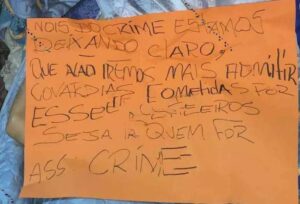 NOIS DO CRIME ESTAMOS
DEIXANDO CLARO,
QUE NÃO IREMOS MAIS ADMITIR
COVARDIAS COMETIDAS POR
ESSE
SEJA QUEM FOR
ASS CRIME